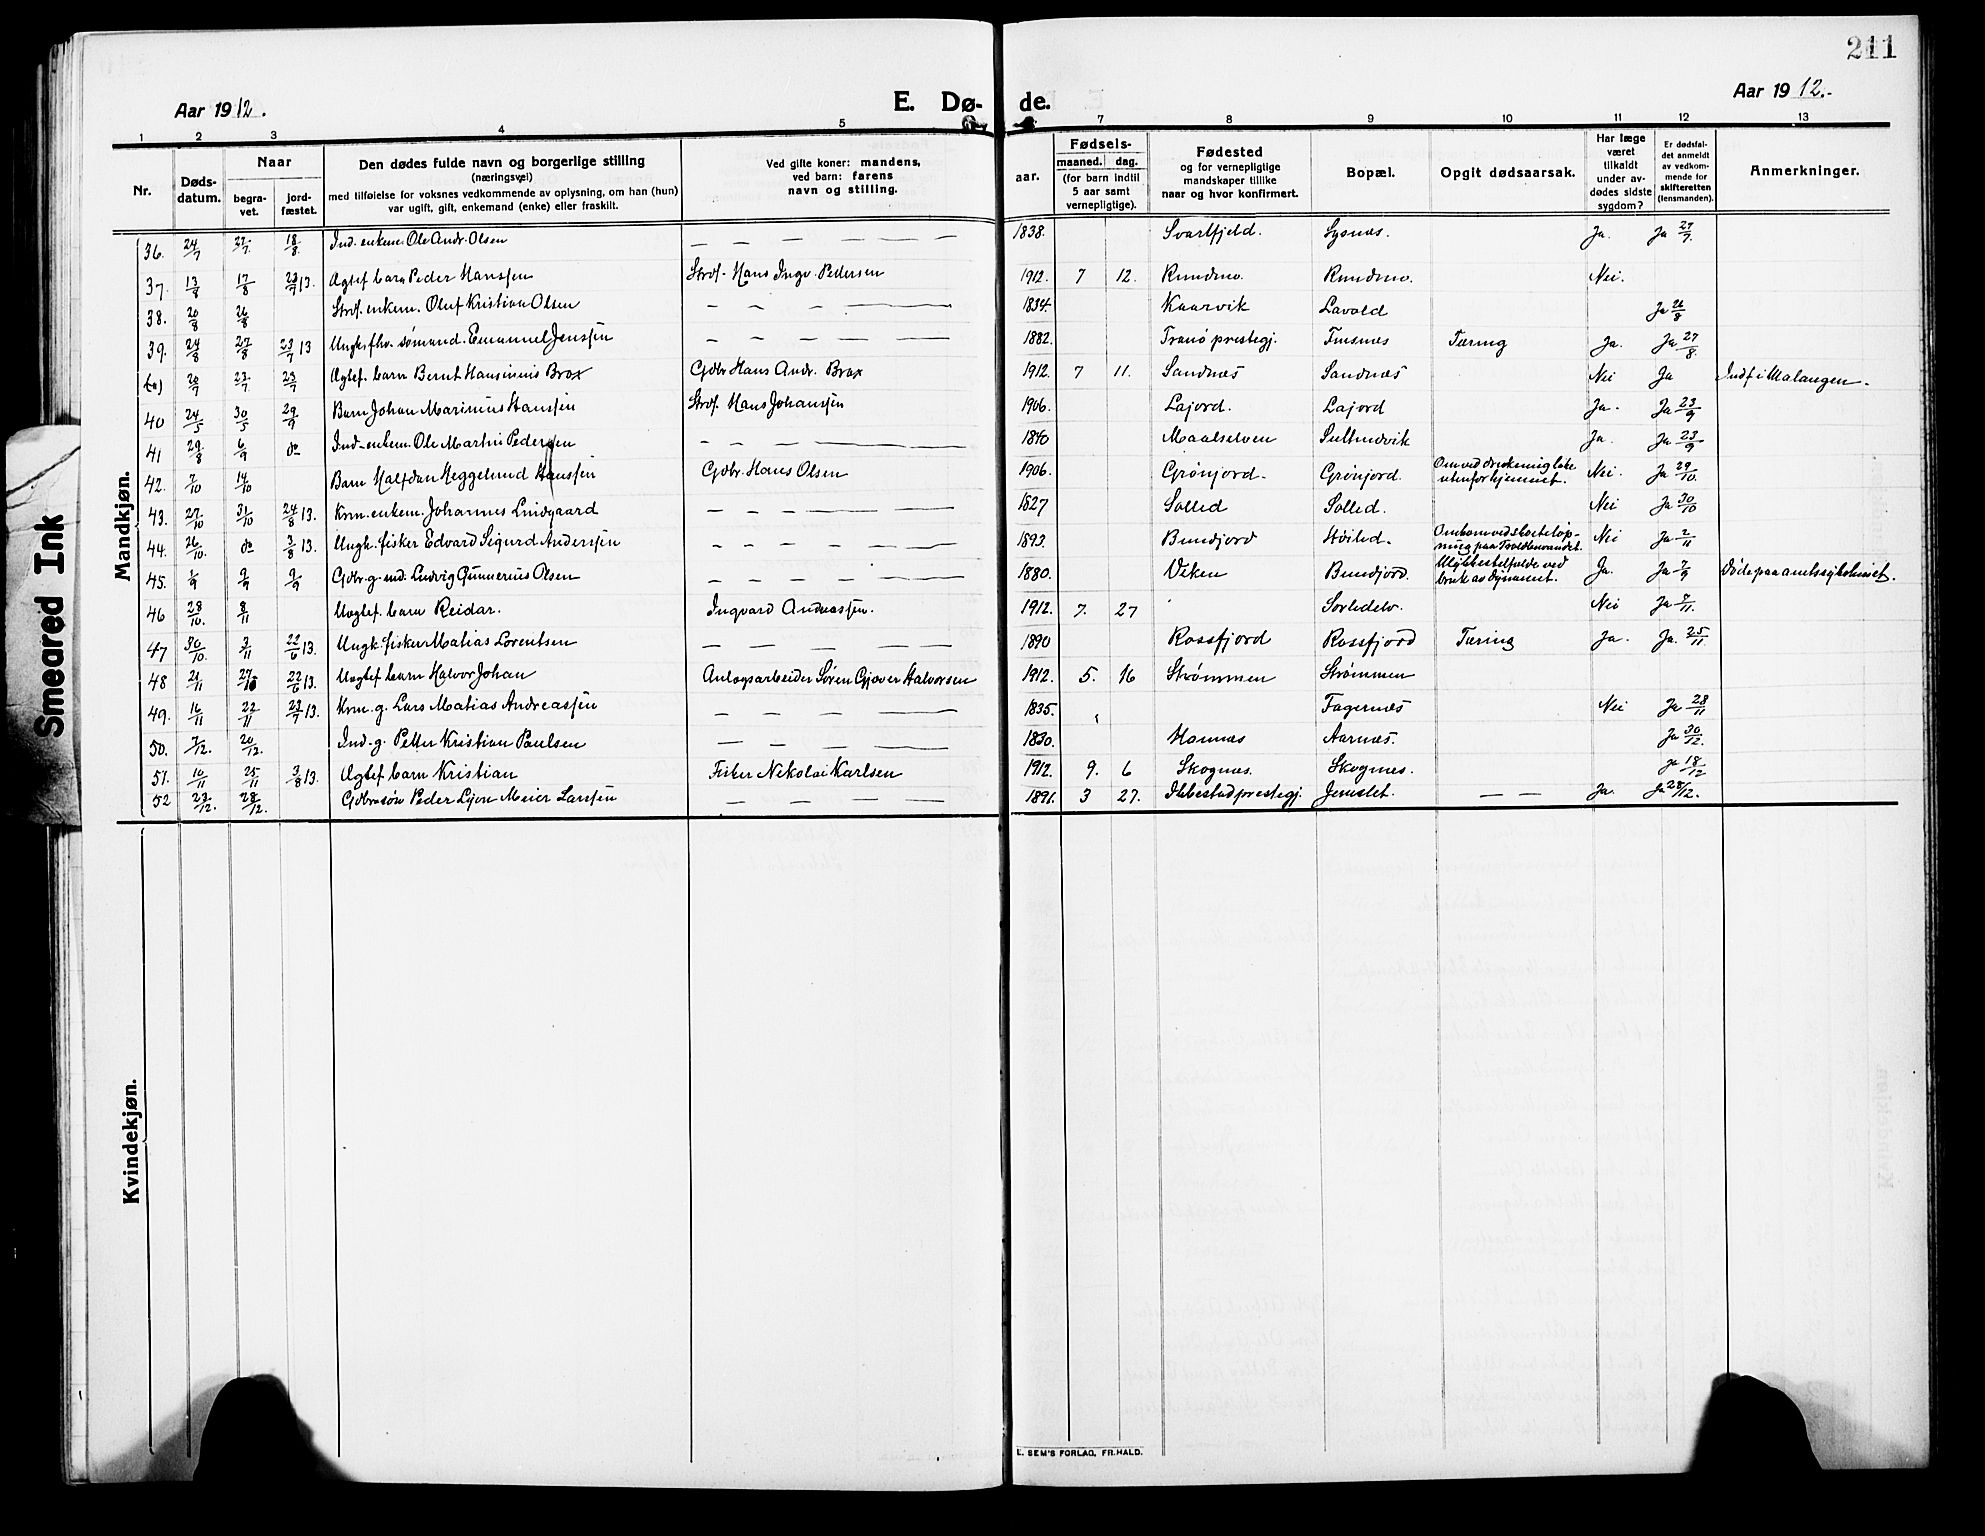 211
Aar 1912.
E. Dø- de.
Aar 1912.-
1 2 3 4 5 6 7 8 9 10 11 12 13
Nr.
Døds-
datum.
Naar
begra-
vet.
jord-
fæstet.
Den dødes fulde navn og borgerlige stilling
(næringsvei)
med tilføielse for voksnes vedkommende av oplysning, om han (hun)
var ugift, gift, enkemand (enke) eller fraskilt.
Ved gifte koner: mandens,
ved barn: farens
navn og stilling.
Fødsels-
aar.
maaned. dag.
(for barn indtil
5 aar samt
vernepligtige).
Fødested
og for vernepligtige
mandskaper tillike
naar og hvor konfirmert.
Bopæl.
Opgit dødsaarsak.
Har læge
været
tilkaldt
under av-
dødes sidste
sygdom?
Er dødsfal-
det anmeldt
av vedkom-
mende for
skifteretten
(lensmanden).
Anmerkninger.
Mandkjøn.
36. 24/7 27/7 18/8 Ind. enkem. Ole Andr. Olsen — — — — — 1838. Svartfjeld. Lysnes. Ja. Ja 27/7.
37. 13/8 17/8 23/7 13. Agtef. barn Peder Hanssen Strøf. Hans Ingv. Pedersen 1912. 7 12. Rundmo. Rundmo. Nei.
38. 20/8 26/8 Strøf. enkem. Oluf Kristian Olsen — — — — — 1834. Kaarvik Lavold Ja 26/8
39. 24/8 27/8 23/7 13 Ungk. fhv. sømand. Emanuel Jenssen — — — — — 1882. Tranø prestegj. Finsnes Tæring Ja. Ja 27/8.
20/7 23/7 23/7 Agtef. barn Bernt Hansinius Brox Gdbr Hans Andr. Brox 1912. 7 11. Sandnæs Sandnæs Nei Ja Indf i Malangen.
40 24/5 30/5 29/9 Barn Johan Marinius Hanssen Strøf. Hans Johanssen 1906. Lajord. Lajord Ja. Ja 23/9
41 29/8 6/9 do Ind. enkem. Ole Martin Pedersen — — — — — 1840 Maalselven Sultindvik Ja. Ja 23/9
42. 7/10 14/10 Barn Halfdan Heggelund Hanssen Gdbr. Hans Olsen 1906. Grønjord. Grønjord. Nei. Ja 29/10.
43. 27/10 31/10 24/8 13. Krm. enkem. Johannes Lindgaard — — — — — 1827 Solled Solled. Nei Ja 30/10
44. 26/10. do 3/8 13. Ungk. fisker Edvard Sigurd Anderssen — — — — — 1893. Bundjord Høiled. Omkom ved skøiteløp-
ning paa Nei Ja 2/11
45. 1/9 9/9 9/9 Gdbr. g. md. Ludvig Gunnerius Olsen — — — — — 1880. Viken Bundjord. Ulykkestilfælde ved
bruk av dynamit. Ja. Ja 7/9 Døde paa amtssykehuset.
46 28/10. 8/11 Uegtef. barn Reidar. Ingvard Andreassen. 1912. 7. 27 Sørledelv. Nei Ja 7/11.
47 30/10. 3/11 22/6 13. Ungk. fisker Matias Lorentsen — — — — — 1890 Rossfjord Rossfjord Tæring Ja. Ja. 25/11
48 21/11 22/6 13. Uegtef barn Halvor Johan Anlegsarbeider Søren Gjøver Halvorsen 1912. 5. 16 Strømmen Strømmen
49. 16/11 22/11 23/7 13. Krm. g. Lars Matias Andreassen — — — — — 1835. Fagernæs Nei Ja 28/11
50. 7/12. 20/12. Ind. g. Petter Kristian Paulsen — — — — — 1830. Hamnæs Aarnæs. Ja 30/12.
51. 10/11 25/11 3/8 13. Agtef barn Kristian Fisker Nikolai Karlsen 1912. 9. 6 Skognæs. Skognæs. Ja 18/12
52 23/12. 28/12. Gdbrsøn Peder Lyder Meier Larssen — — — — — 1891. 3 27. Ibbestad prestegj. — — Ja. Ja 28/12.
Kvindekjøn.
Smeared Ink
E. SEM'S FORLAG, FR.HALD.